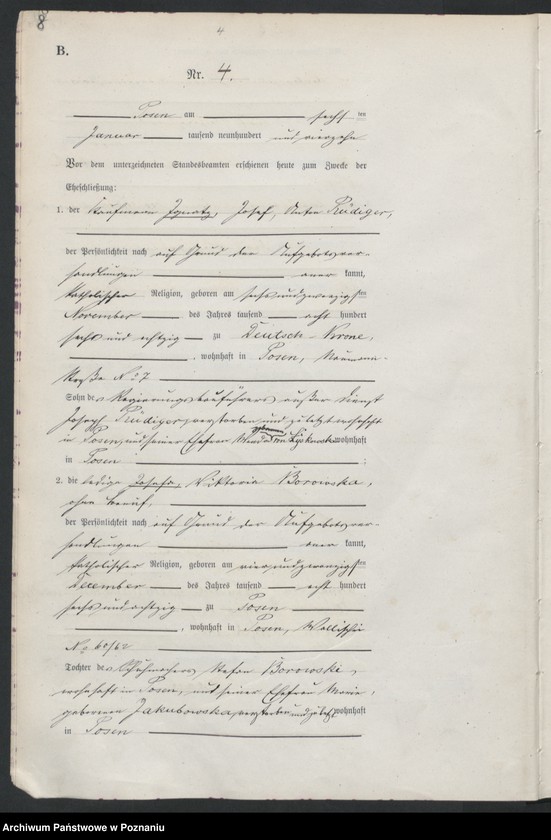 8
4
B.
Nr. 4.
Posen am sechsten
Januar tausend neunhundert und vierzehn
Vor dem unterzeichneten Standesbeamten erschienen heute zum Zwecke der
Eheschließung:
1. der Kaufmann Ignatz, Josef, Anton Rüdiger,
der Persönlichkeit nach auf Grund der Aufgebotsver-
handlungen aner kannt,
katholischer Religion, geboren am sechsundzwanzigsten
November des Jahres tausend acht hundert
sechs und achtzig zu Deutsch Krone,
, wohnhaft in Posen, Naumann-
straße No 7
Sohn des Regierungsbauführers außer Dienst
Joseph Rüdiger, verstorben und zuletzt wohnhaft
in Posen, und seiner Ehefrau geborenen Lyskowska wohnhaft
in Posen ;
2. die ledige Josefa, Viktoria Borowska,
ohne Beruf,
der Persönlichkeit nach auf Grund der Aufgebotsver-
handlungen aner kannt,
katholischer Religion, geboren am vierundzwanzigsten
December des Jahres tausend acht hundert
sechs und achtzig zu Posen
, wohnhaft in Posen, Wallischei
No 60/62
Tochter des Schuhmachers Stefan Borowski,
wohnhaft in Posen, und seiner Ehefrau Maria,
geborenen Jakubowska, verstorben und zuletzt wohnhaft
in Posen
Archiwum Państwowe w Poznaniu